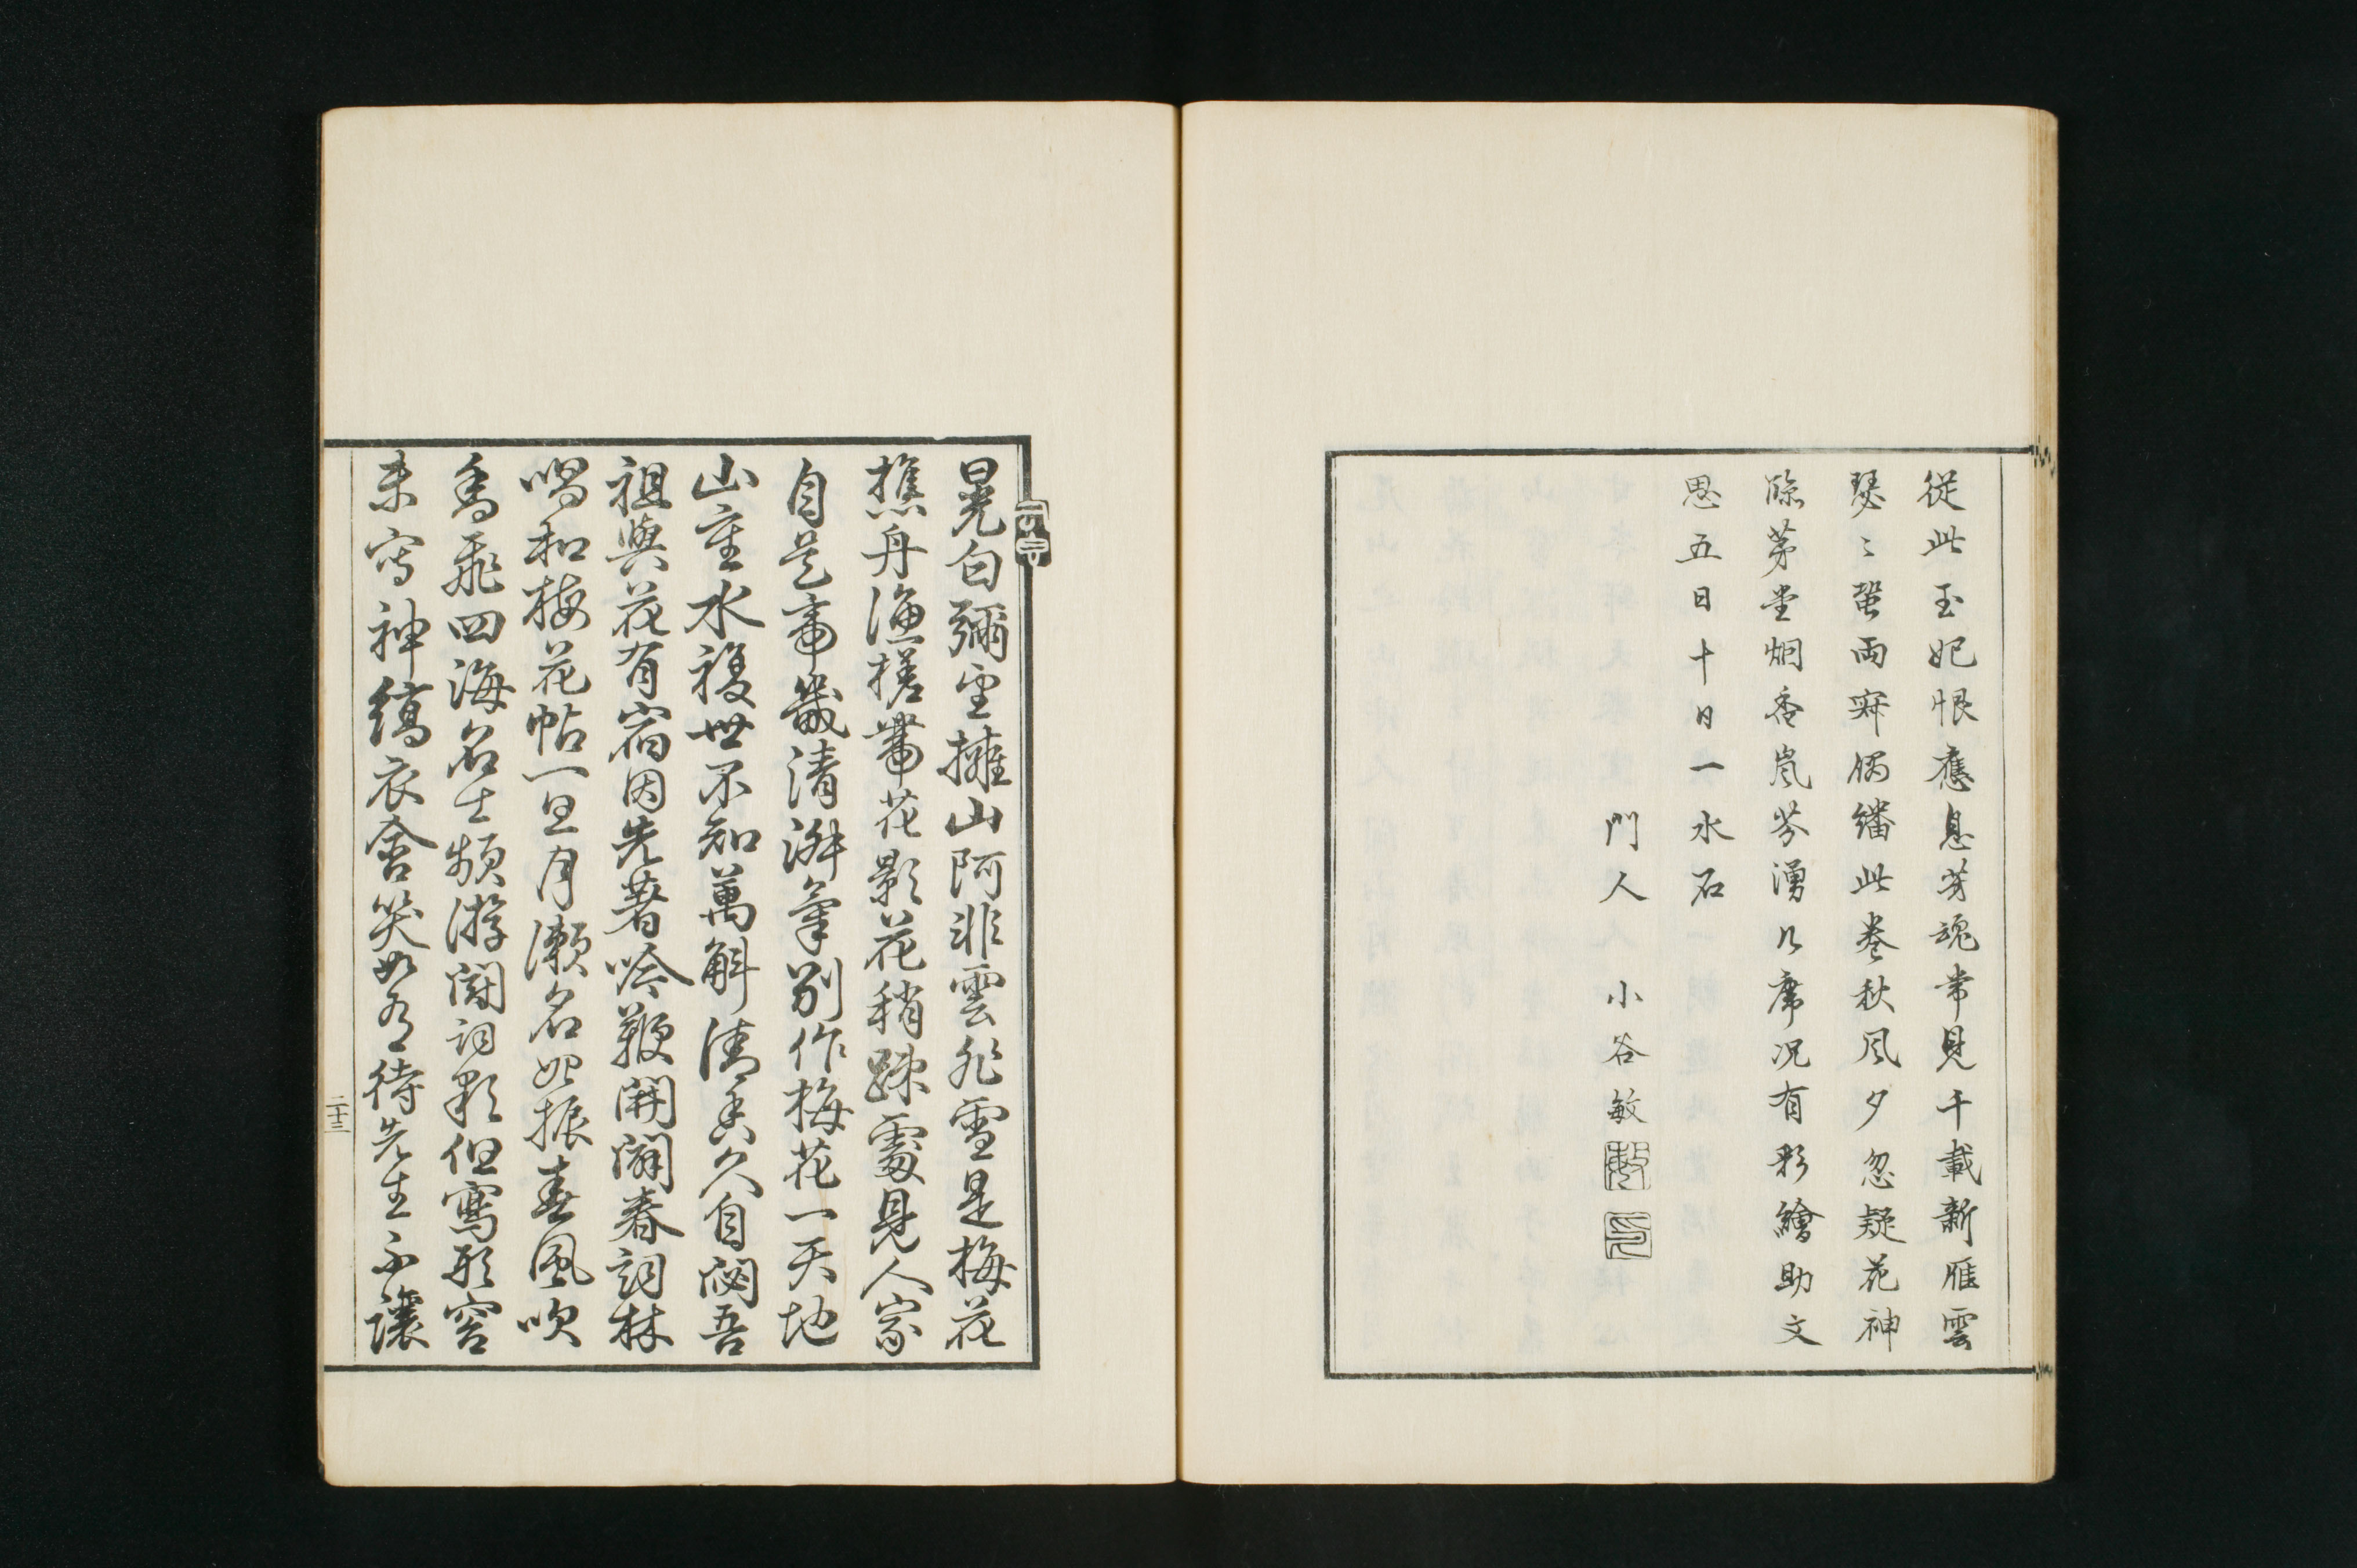 從此玉妃恨應息芳魂常見千載新雁雲
瑟々蛩雨寂偶繙此卷秋風夕忽疑花神
隙茅堂烟香嵐芬湧几席况有彩繪助文
思五日十日一水石
門人 小谷敏
晃白彌望擁山阿非雲非雪是梅花
樵舟漁槎帶花影花稍疎處見人家
自是乾坤清淑氣別作梅花一天地
山重水複世不知萬斛清香久自閟吾
祖與花有宿因先著吟鞭開闢春詞林
唱和梅花帖一旦月瀨名始振春風吹
香飛四海名士頻游鬪詞彩但寫形容
未寫神縞衣含笑如有待先生不讓
二十三